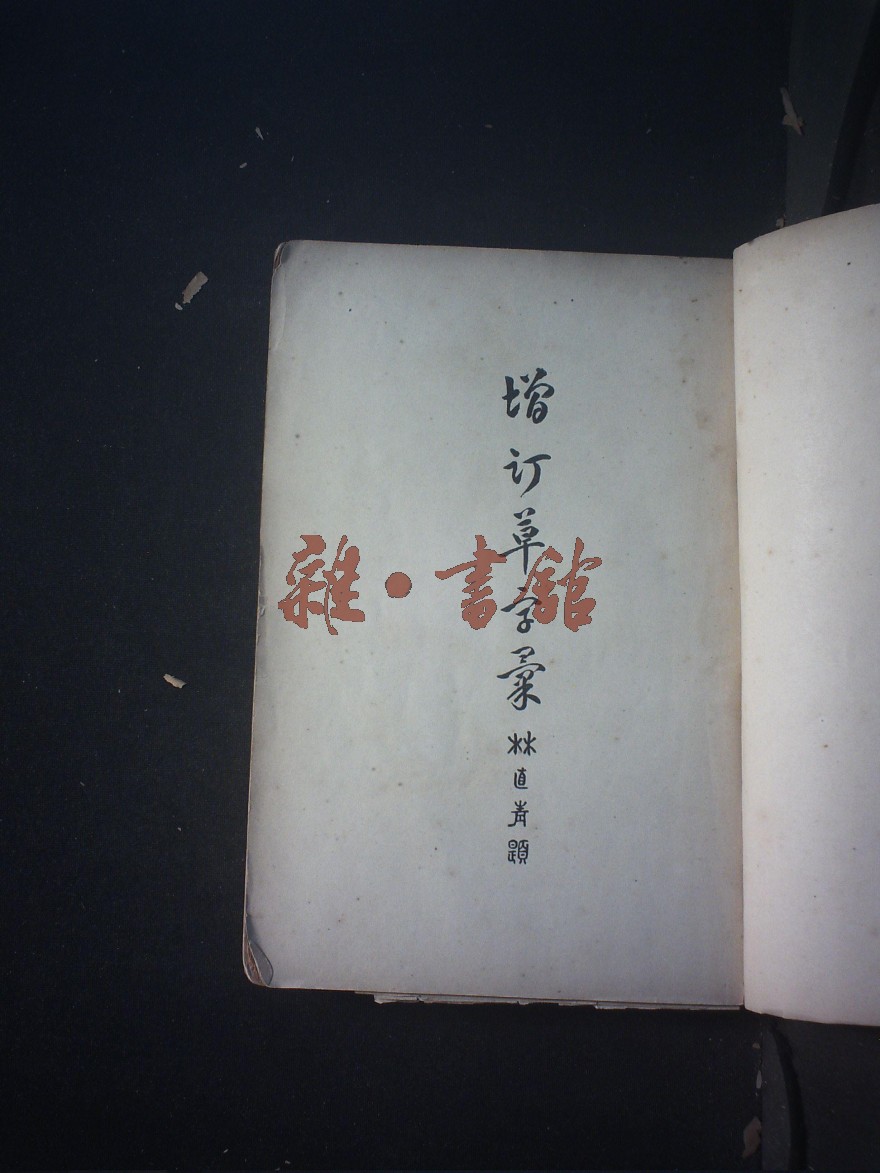 增訂草字彙
林直清題
雜·書館